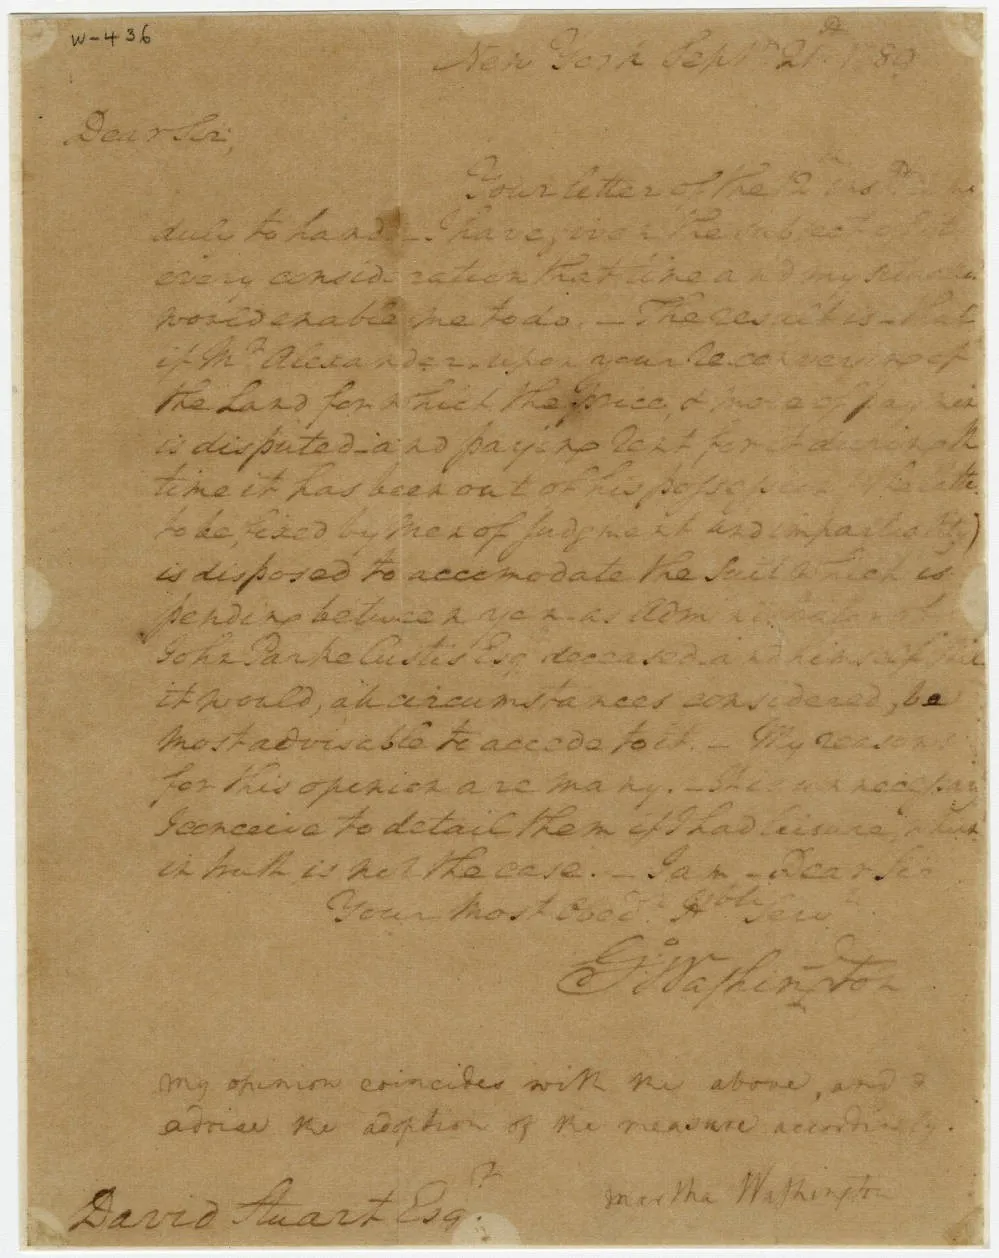 W-436
New York Sepr. 21st 1789
Dear Sir,
Your letter of the 12th inst. came
duly to hand. I have given the subject of it
every consideration that time and my situation
would enable me to do. — The result is — that
if Mr. Alexander, upon your reconveying of
the Land for which the price, & mode of paymen
is disputed — and paying Rent for it during th
time it has been out of his possession (the latter
to be fixed by Men of Judgment and impartiality)
is disposed to accomodate the Suit which is
pending between you as Administrator of
John Parke Custis Esqr. deceased and himself that
it would, all circumstances considered, be
most advisable to accede to it. — My reasons
for this opinion are many. — It is unnecessary
I conceive to detail them if I had leisure, which
in truth is not the case. — I am — Dear Sir
Your Most Obedt. Hble Servt.
Go. Washington
My opinion coincides with the above, and I
advise the adoption of the measure accordingly.
Martha Washington
David Stuart Esqr.